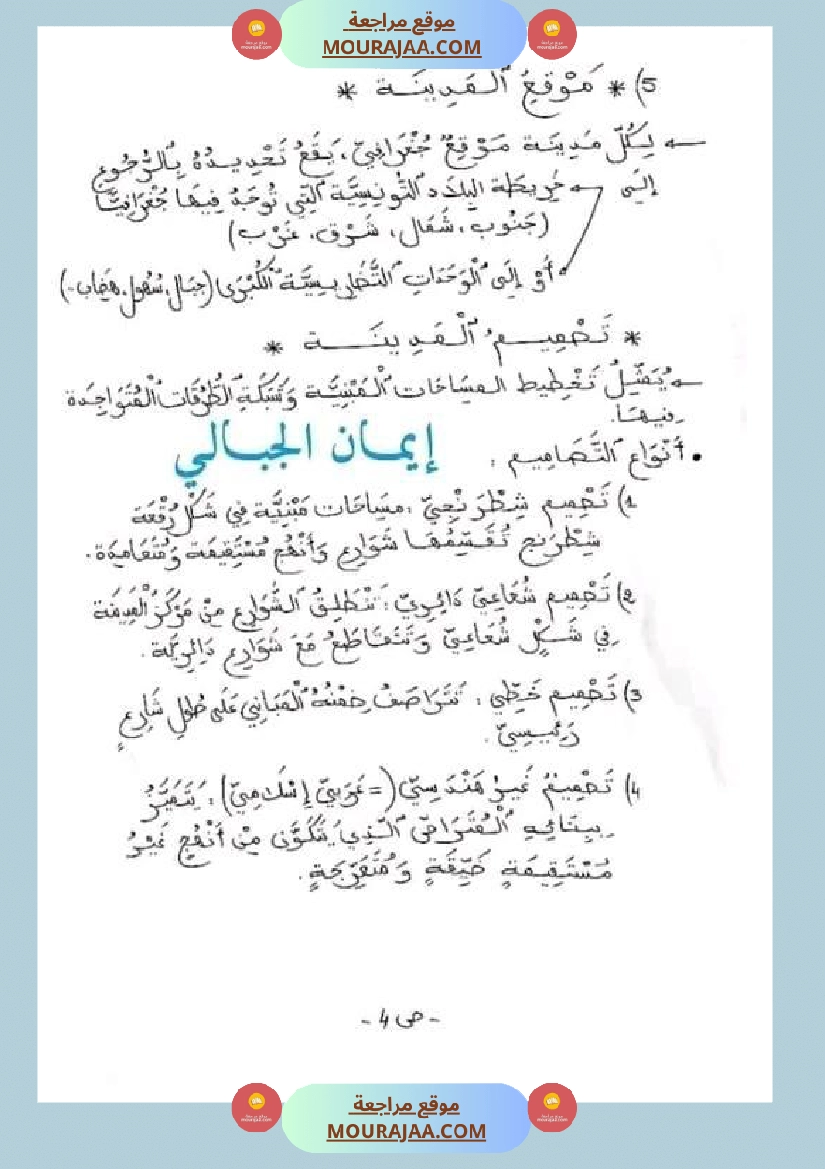 موقع مراجعة
MOURAJAA.COM
5) * مَوْقِعُ ٱلْمَدِينَة *
← لِكُلّ مَدِينَة مَوْقِعٌ جُغْرَافِيّ، يَقَعُ تَحْدِيدُهُ بِٱلرُّجُوعِ
إِلَى ← خَرِيطَة البلاد ٱلتُّونِسِيَّة ٱلَّتِي تُوجَدُ فِيهَا جُغْرَافِيًّا
(جَنُوب، شَمَال، شَرْق، غَرْب)
أَوْ إِلَى ٱلْوَحَدَاتِ ٱلتَّضَارِيسِيَّة ٱلْكُبْرَى (جِبَال، سُهُول، هِضَاب..)
* تَصْمِيمُ ٱلْمَدِينَة *
← يُمَثِّلُ تَخْطِيط المسَاحَات ٱلْمَبْنِيَّة وَشَبَكَةِ ٱلطُّرُقَات ٱلْمُتَوَاجِدَة
فِيهَا.
إيمان الجبالي
• أَنْوَاع ٱلتَّصَامِيم :
1) تَصْمِيم شِطْرَنْجِيّ : مسَاحَات مَبْنِيَّة فِي شَكْلِ رُقْعَة
شِطْرَنج تُقَسِّمُهَا شَوَارِع وَأَنْهُج مُسْتَقِيمَة وَمُتَعَامِدَة.
2) تَصْمِيم شُعَاعِيّ دَائِرِيّ : تَنْطَلِقُ ٱلشَّوَارِع مِنْ مَرْكَز ٱلْمَدِينَة
فِي شَكْلٍ شُعَاعِيّ وَتَتَقَاطَعُ مَعَ شَوَارِع دَائِرِيَّة.
3) تَصْمِيم خَطِّي : تَتَرَاصَفُ ضِمْنَهُ ٱلْمَبَانِي عَلَى طُولِ شَارِعٍ
رَئِيسِيّ.
4) تَصْمِيمٌ غَيْرُ هَنْدَسِيّ (= عَرَبِيّ إِسْلَامِيّ) : يَتَمَيَّزُ
بِبِنَائِهِ ٱلْمُتَرَاصّ ٱلَّذِي يَتَكَوَّن مِنْ أَنْهُجٍ غَيْرُ
مُسْتَقِيمَةٍ ضَيِّقَةٍ وَمُتَعَرِّجَةٍ.
- ص 4 -
موقع مراجعة
MOURAJAA.COM